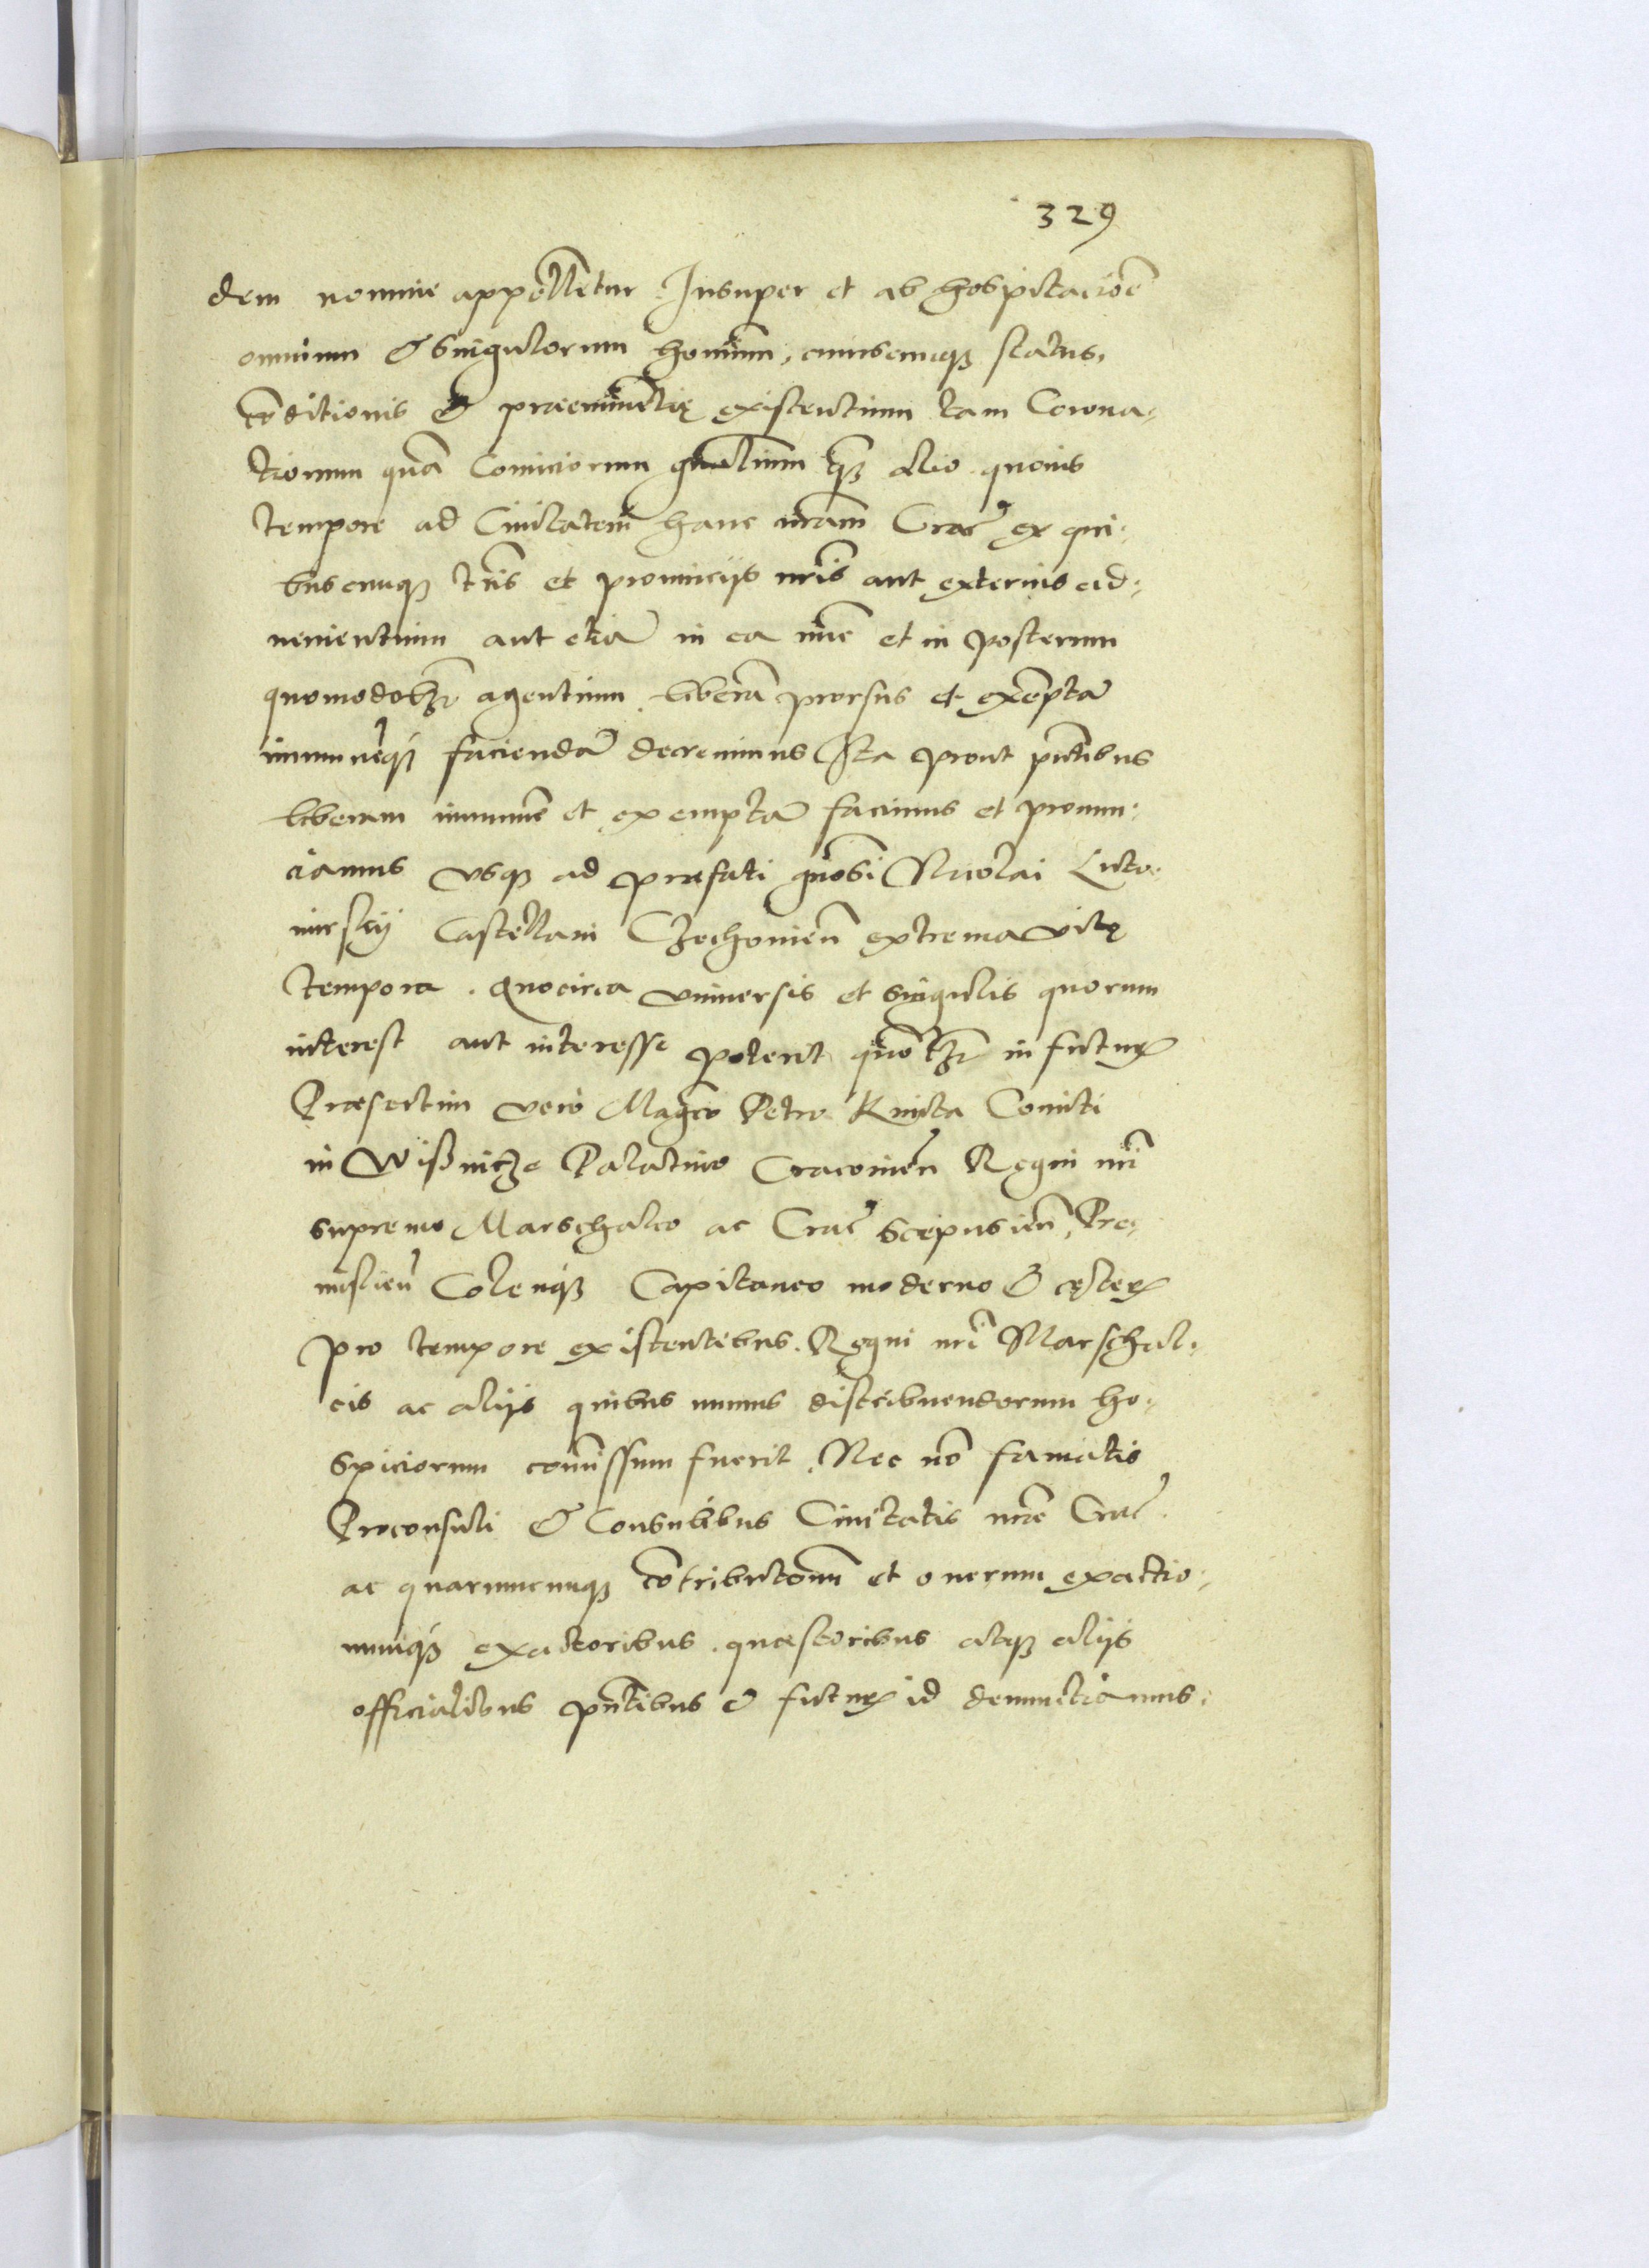 329
dem nomine appellẽtur. Insuper et ab hospitaciõe
omnium & singulorum hominũ, cuiuscunq₃ status,
cõditionis & praeeminẽtię existentium tam Corona-
tionum quã Comiciorum gñalium q₃ alio quouis
tempore ad Ciuitatem hanc nr̃am Crac̃ ex qui-
buscunq₃ tr̃is et prouinciis nr̃is aut externis ad-
uenientium aut etiã in ea nũc et in posterum
quomodolib₃ agentium liberã prorsus et exẽptã
immunẽq₃ faciendã decreuimus Ita prout pñtibus
liberam immunẽ et exemptã facimus et pronun-
ciamus vsq₃ ad praefati gñosi Nicolai Luto-
mirskij Castellani Czechouieñ extrema vitę
tempora. Quocirca vniuersis et singulis quorum
interest aut interesse poterit quõlib₃ in futurꝝ
Praesertim vero Magco Petro Kmita Comiti
in Wisznicze Palatino Cracouieñ Regni nr̃i
supremo Marschalco ac Crac̃ Scepusieñ, Pre-
mislieñ Coleñq₃ Capitaneo moderno & cęterꝝ
pro tempore existentibus Regni nr̃i Marschal-
cis ac aliis quibus munus distribuendorum ho-
spiciorum com̃issum fuerit. Nec nõ famatis
Proconsuli & Consulibus Ciuitatis nr̃e Crac̃
ac quarumcunq₃ cõtributionũ et onerum exactio-
numq₃ exactoribus quaestoribus atq₃ aliis
officialibus pñtibus & futurꝝ id denunctiamus.